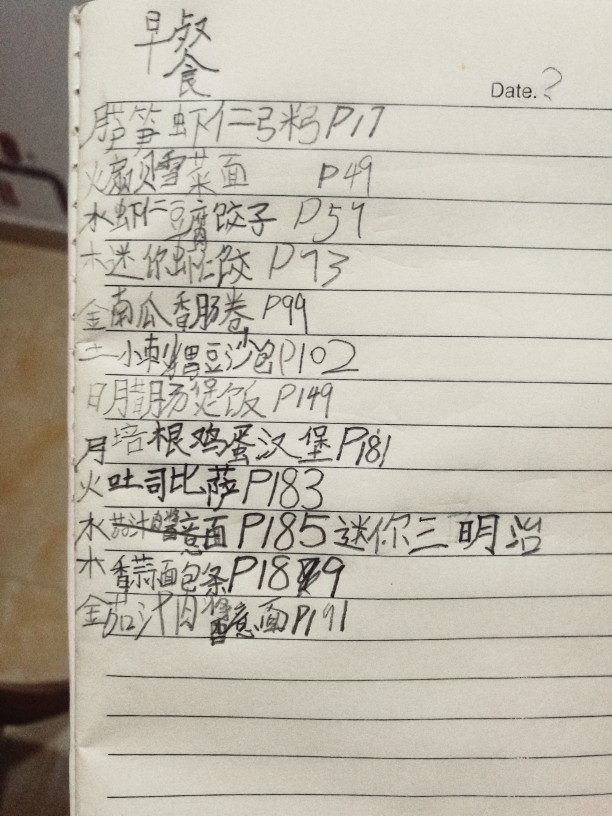 早餐
Date.?
月芦笋虾仁粥P17
火扇贝雪菜面 P49
水虾仁豆腐饺子 P59
木迷你虾仁饺 P73
金南瓜香肠卷 P99
土小刺猬豆沙包P102
日腊肠煲饭 P149
月培根鸡蛋汉堡P181
火吐司比萨P183
水茄汁肉酱意面P185迷你三明治
木香蒜面包条P189
金茄汁肉酱意面P191